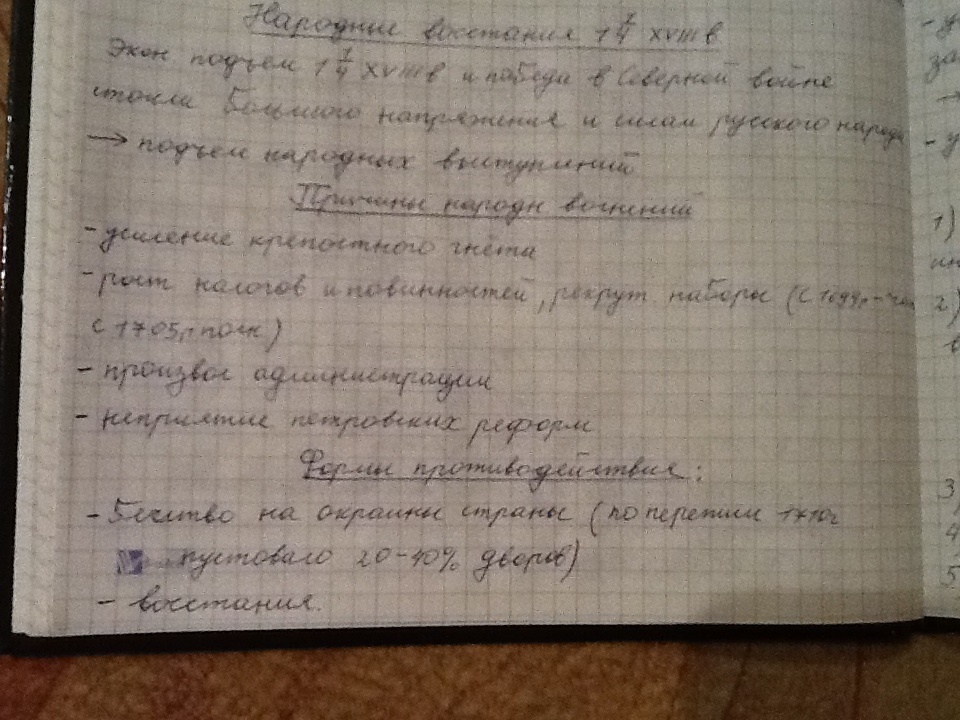 Народные восстания 1 1/4 XVIII в
Экон подъем 1 1/4 XVIII в и победа в Северной войне
стоили большого напряжения и силам русского народа
→ подъем народных выступлений
Причины народн волнений
- усиление крепостного гнёта
- рост налогов и повинностей, рекрут наборы (с 1699г-
с 1705г полн)
- произвол администрации
- неприятие петровских реформ
Формы противодействия:
- Бегство на окраины страны (по переписи 1710г
пустовало 20-40% дворов)
- восстания.
- у
за
→
- у
1)
ин
2)
в
3)
4
5